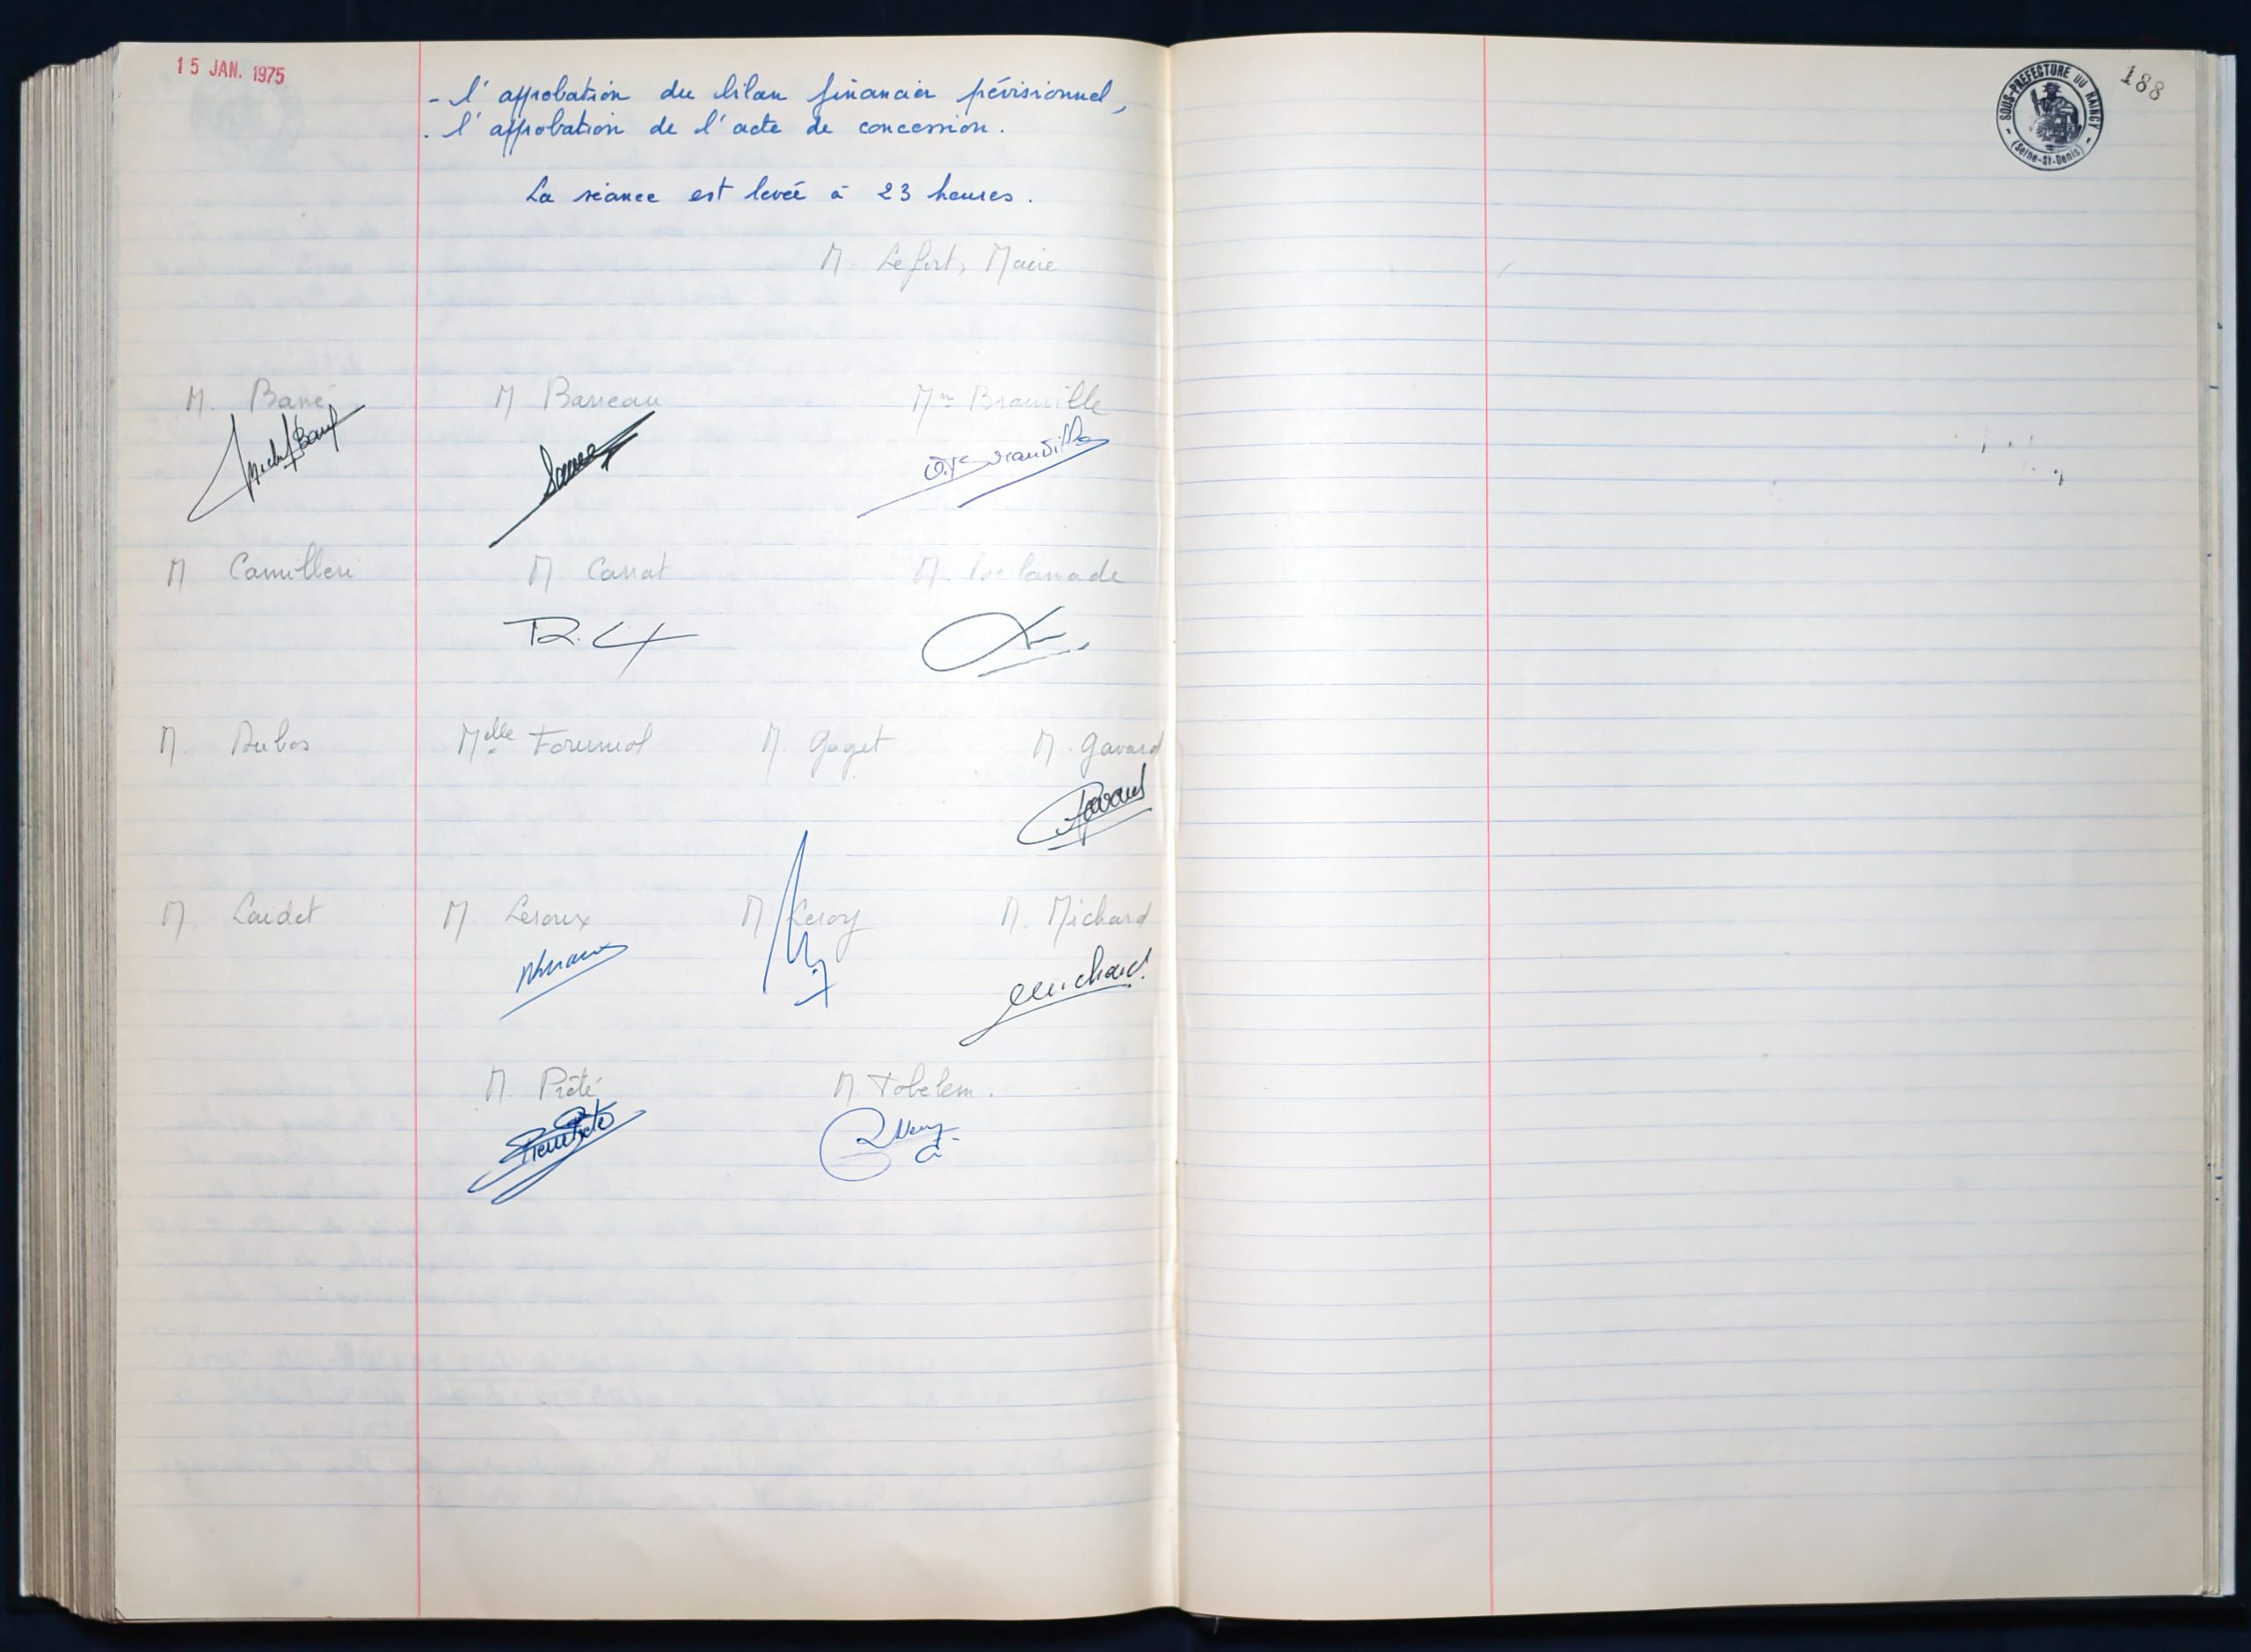 15 JAN. 1975
- l'approbation du bilan financier prévisionnel,
- l'approbation de l'acte de concession.
La séance est levée à 23 heures.
M. Lefort, Maire
M. Barré M Barreau Mme Branville
M Camilleri M Carrat M. Esclamade
M. Dubos Melle Fournol M. Gaget M. Gavard
M. Laidet M Leroux M Leroy M. Michard
M. Prêté M. Tobelem.
SOUS-PREFECTURE DU RAINCY
(Seine-St-Denis)
188